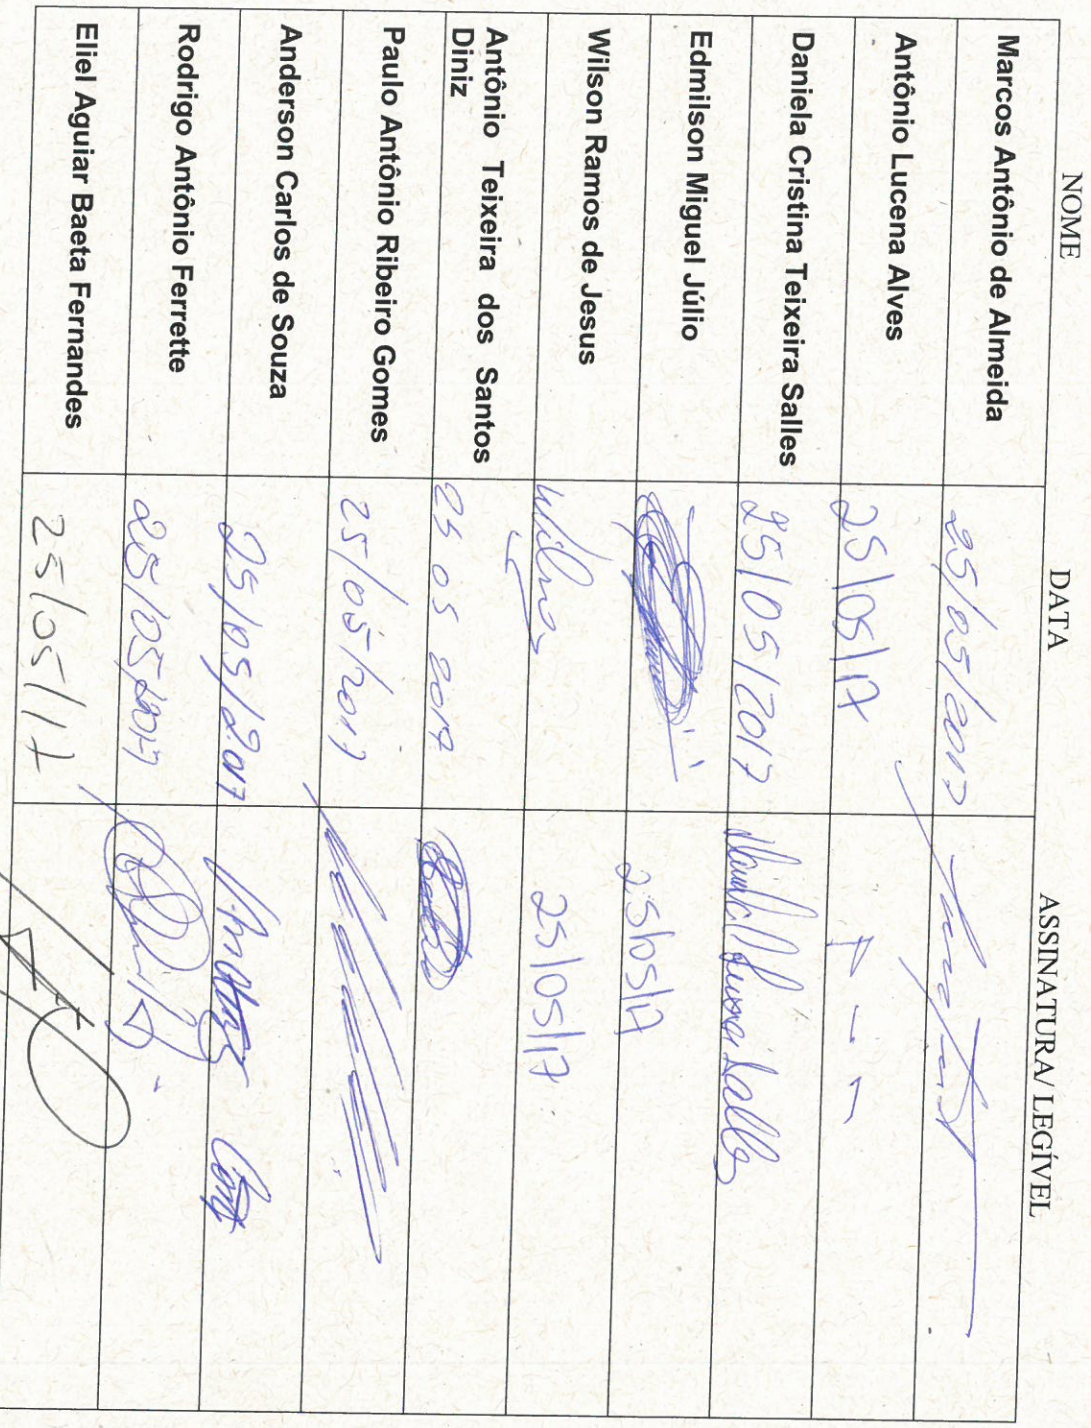 NOME DATA ASSINATURA/ LEGÍVEL
Marcos Antônio de Almeida 25/05/2017
Antônio Lucena Alves 25/05/17
Daniela Cristina Teixeira Salles 25/05/2017 Salles
Edmilson Miguel Júlio 25/05/17
Wilson Ramos de Jesus 25/05/17
Antônio Teixeira dos Santos
Diniz 25 05 2017
Paulo Antônio Ribeiro Gomes 25/05/2017
Anderson Carlos de Souza 25/05/2017
Rodrigo Antônio Ferrette 25/05/2017
Eliel Aguiar Baeta Fernandes 25/05/17